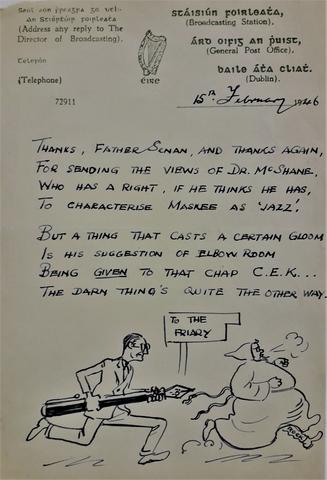 an Stiúrthóir Foirleata
(Address any reply to The
Director of Broadcasting).
Telefón
(Telephone)
72911
éire
stáisiún foirleata,
(Broadcasting Station).
árd oifig an puist,
(General Post Office).
baile áta cliat.
(Dublin).
15th February 1946
THANKS, FATHER SENAN, AND THANKS AGAIN,
FOR SENDING THE VIEWS OF DR. MCSHANE,
WHO HAS A RIGHT, IF HE THINKS HE HAS,
TO CHARACTERISE MASKEE AS 'JAZZ'.
BUT A THING THAT CASTS A CERTAIN GLOOM
IS HIS SUGGESTION OF ELBOW ROOM
BEING GIVEN TO THAT CHAP C.E.K...
THE DARN THING'S QUITE THE OTHER WAY.
TO THE
FRIARY